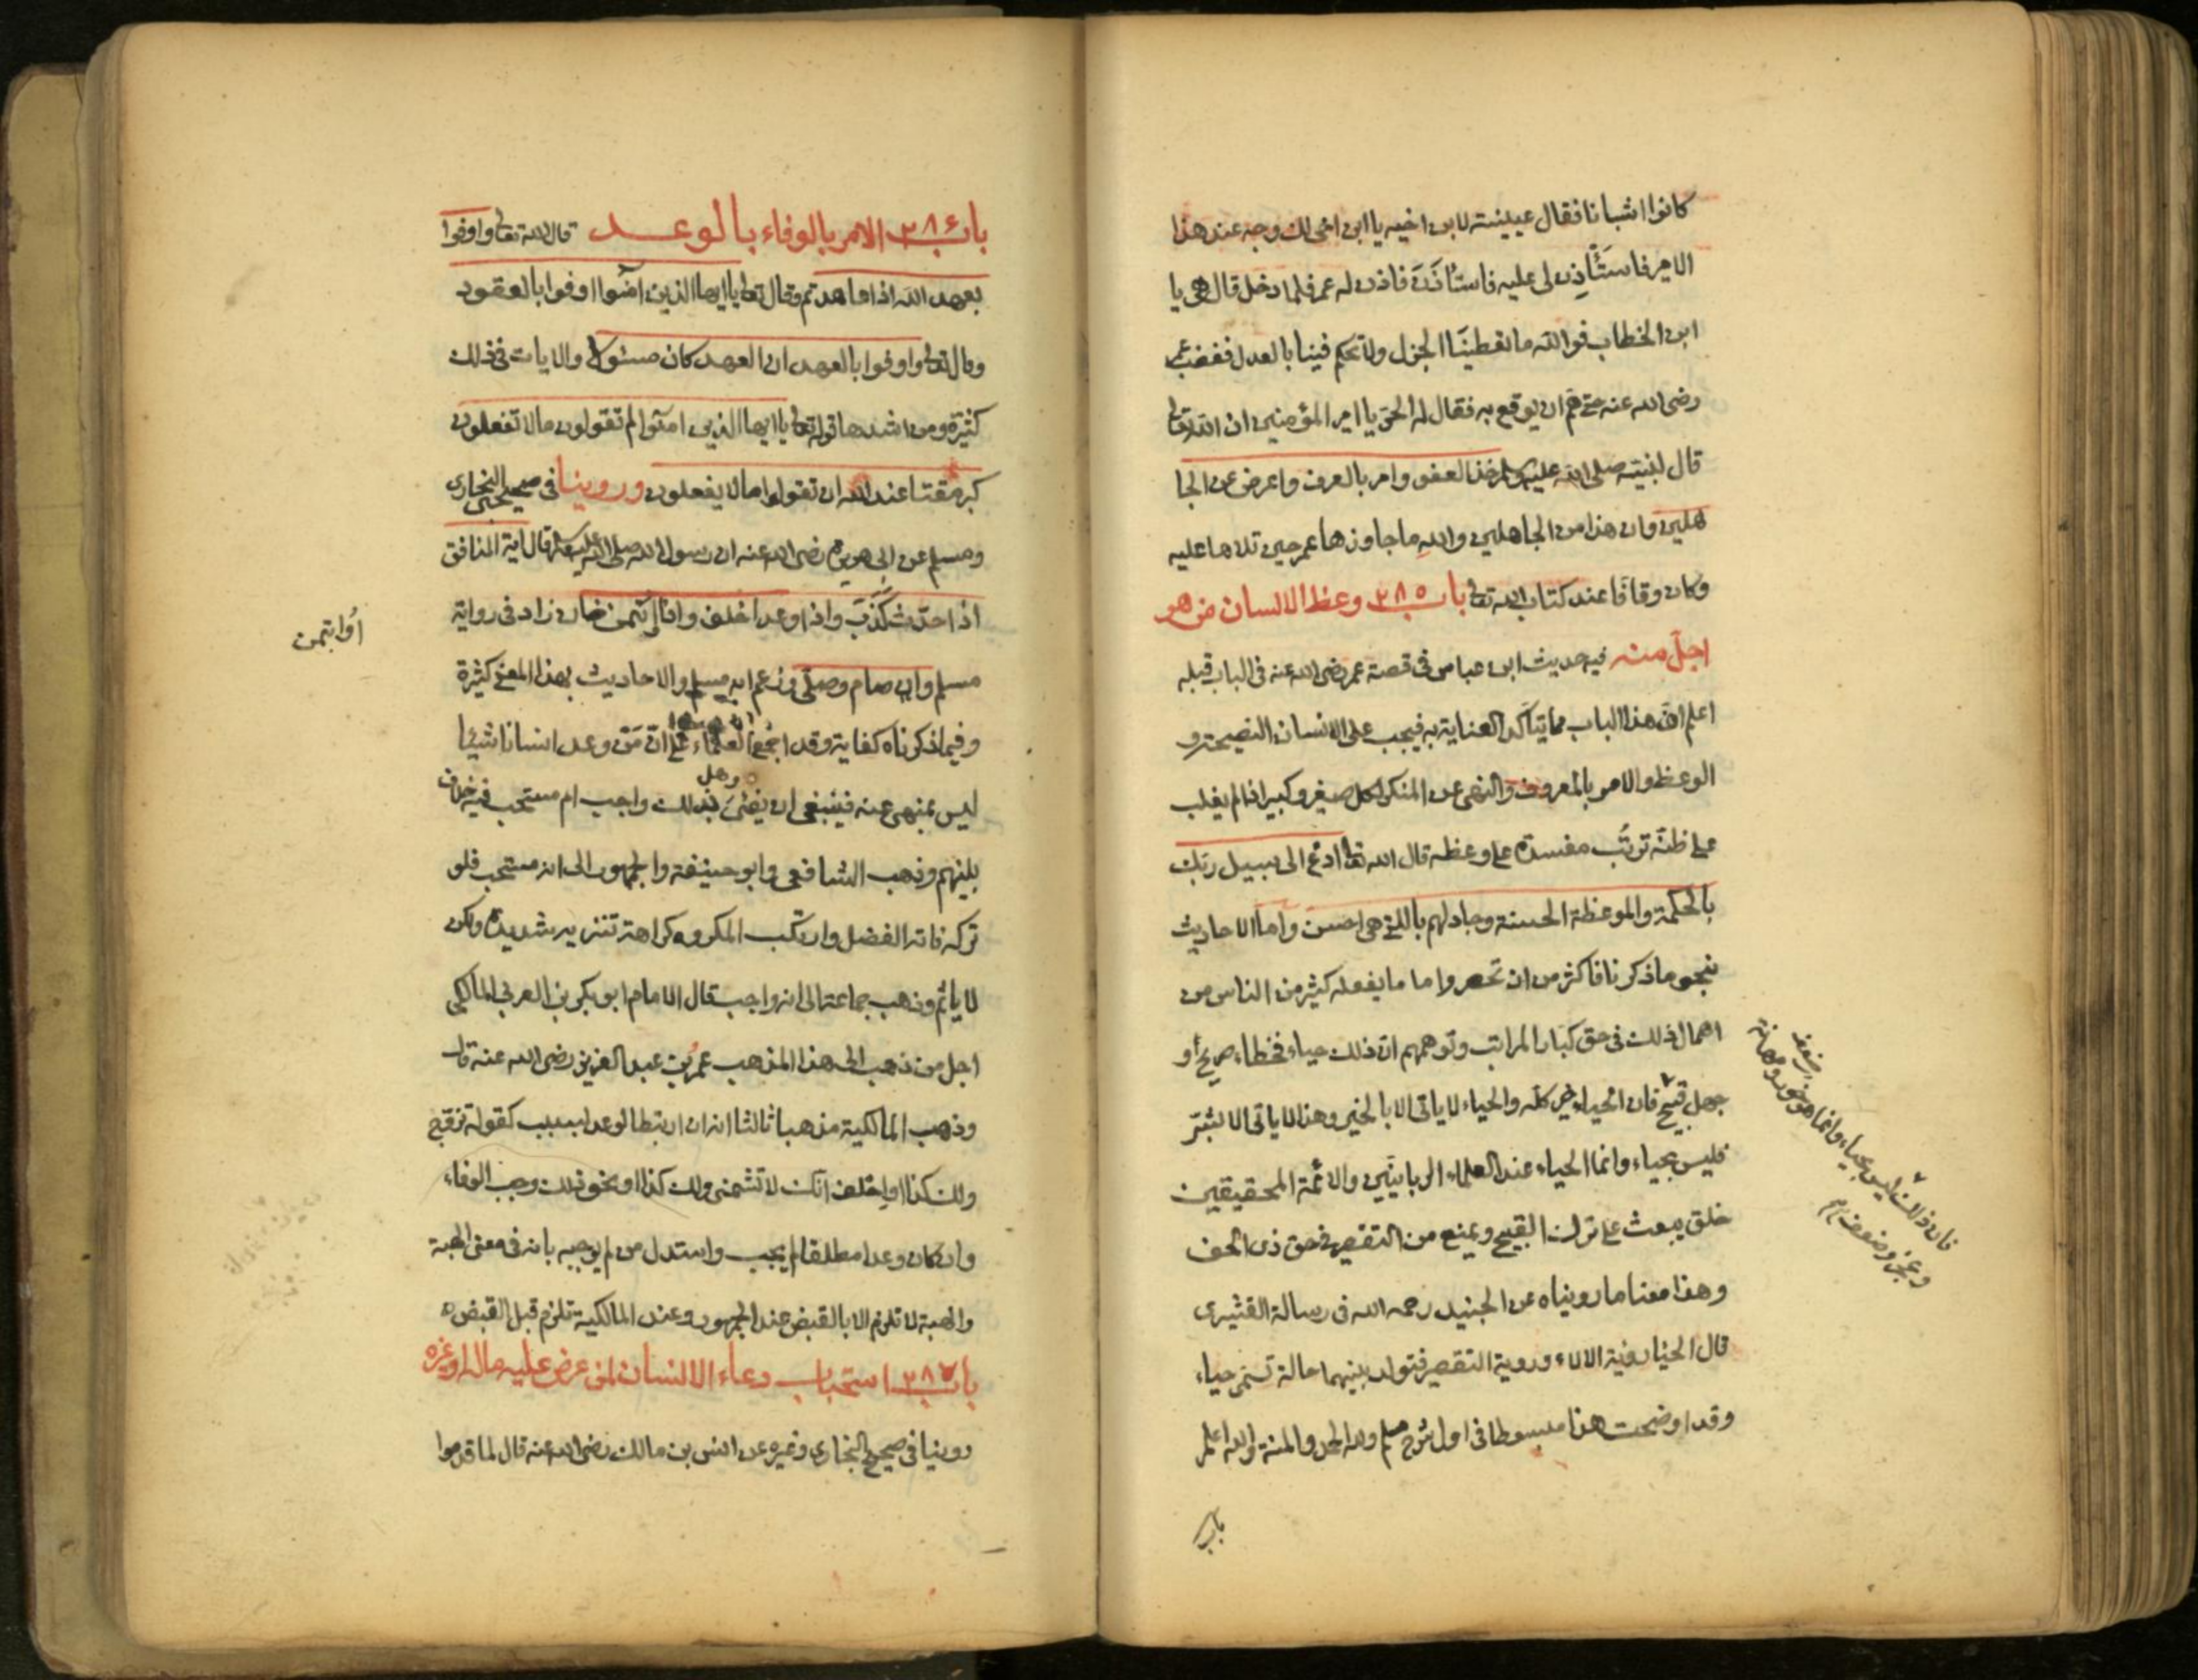 كانوا اشبانا فقال عيينة لابن اخيه يا ابن اخى لك وجه عند هذا
الامير فاستَأذِن لى عليه فاستأذَنَ فاذن له عمر فلما دخل قال هى يا
ابن الخطاب فوالله ما تعطينَا الجزل ولا تحكم فينا بالعدل فغضب عمر
رضى الله عنه حتى هَمّ ان يوقع به فقال له الحر يا امير المؤمنين ان الله تعالى
قال لنبيه صلى الله عليه وسلم خذ العفو وامر بالعرف واعرض عن الجا
هلين وان هذا من الجاهلين والله ما جاوزها عمر حين تلاها عليه
وكان وقافًا عند كتاب الله تعالى باب ٢٨٥ وعظ الانسان من هو
اجلّ منه فيه حديث ابن عباس فى قصة عمر رضى الله عنه فى الباب قبله
اعلم انّ هذا الباب مما يتأكد العناية به فيجب على الانسان النصيحة و
الوعظ والامر بالمعروف والنهى عن المنكر لكل صغير وكبير اذا لم يغلب
على ظنّه ترتّب مفسدة على وعظه قال الله تعالى ادع الى سبيل ربك
بالحكمة والموعظة الحسنة وجادلهم بالتى هى احسن واما الاحاديث
بنحو ما ذكرنا فاكثر من ان تحصر واما ما يفعله كثير من الناس من
اهمال ذلك فى حق كبار المراتب وتوهمهم ان ذلك حياء فخطاء صريح أو
جهل قبيح فان الحياء خير كله والحياء لا ياتى الا بالخير وهذا لا ياتى الا بشر
فليس بحياء وانما الحياء عند العلماء الربانيّين والائمة المحقيقين
خلق يبعث على ترك القبيح ويمنع من التقصير فى حق ذى الحق
وهذا معنا ما رويناه عن الجنيد رحمه الله فى رسالة القشيرى
قال الحيا روية الالاء وروية التقصير فتولد بينهما حالة تسمى حياء
وقد اوضحت هذا مبسوطا فى اول شرح مسلم ولله الحمد والمنة والله اعلم
باب
فان ذلك ليس بحياء وانما هو خور ومهانة
وعجز وضعف
باب ٢٨٦ الامر بالوفاء بالوعد قال الله تعالى واوفوا
بعهد الله اذا عاهدتم وقال تعالى يا ايها الذين آمنوا اوفوا بالعقود
وقال تعالى واوفوا بالعهد ان العهد كان مسئولا والايات فى ذلك
كثيرة ومن اشدها قوله تعالى يا ايها الذين امنوا لم تقولون مالا تفعلون
كبر مقتا عند الله ان تقولوا مالا يفعلون وروينا فى صحيحى البخارى
ومسلم عن ابى هريرة رضى الله عنه ان رسول الله صلى الله عليه وسلم قال آية المنافق
اذا حدّث كَذَبَ واذا وعد اخلف واذا إئتمن خان زاد فى رواية
اؤايتمن
مسلم وان صام وصلّى وزعم انه مسلم والاحاديث بهذا المعنى كثيرة
وفيما ذكرناه كفاية وقد اجمع العلماء على انّ مَن وعد انسانا شيئا
ليس بمنهى عنه فينبغى ان يفى بذلك وهل واجب ام مستحب فيه خلاف
بينهم وذهب الشافعى وابو حنيفة والجمهور الى انه مستحب فلو
تركه فاته الفضل وارتكب المكروه كراهة تنزيه شديدة ولكن
لا ياثم وذهب جماعة الى انه واجب قال الامام ابو بكر بن العربى المالكى
اجل من ذهب الى هذا المذهب عمر بن عبد العزيز رضى الله عنه قال
وذهب المالكية مذهبا ثالثا انه ان ارتبط الوعد بسبب كقوله تزوج
ولك كذا او احلف انك لا تشتمنى ولك كذا او نحو ذلك وجب الوفاء
وان كان وعدا مطلقا لم يجب واستدل من لم يوجبه بانه فى معنى الهبة
والهبة لا تلزم الا بالقبض عند الجمهور وعند المالكية تلزم قبل القبض
باب ٢٨٧ استحباب دعاء الانسان لمن عرض عليه ماله او غيره
روينا فى صحيح البخارى وغيره عن انس بن مالك رضى الله عنه قال لما قدموا